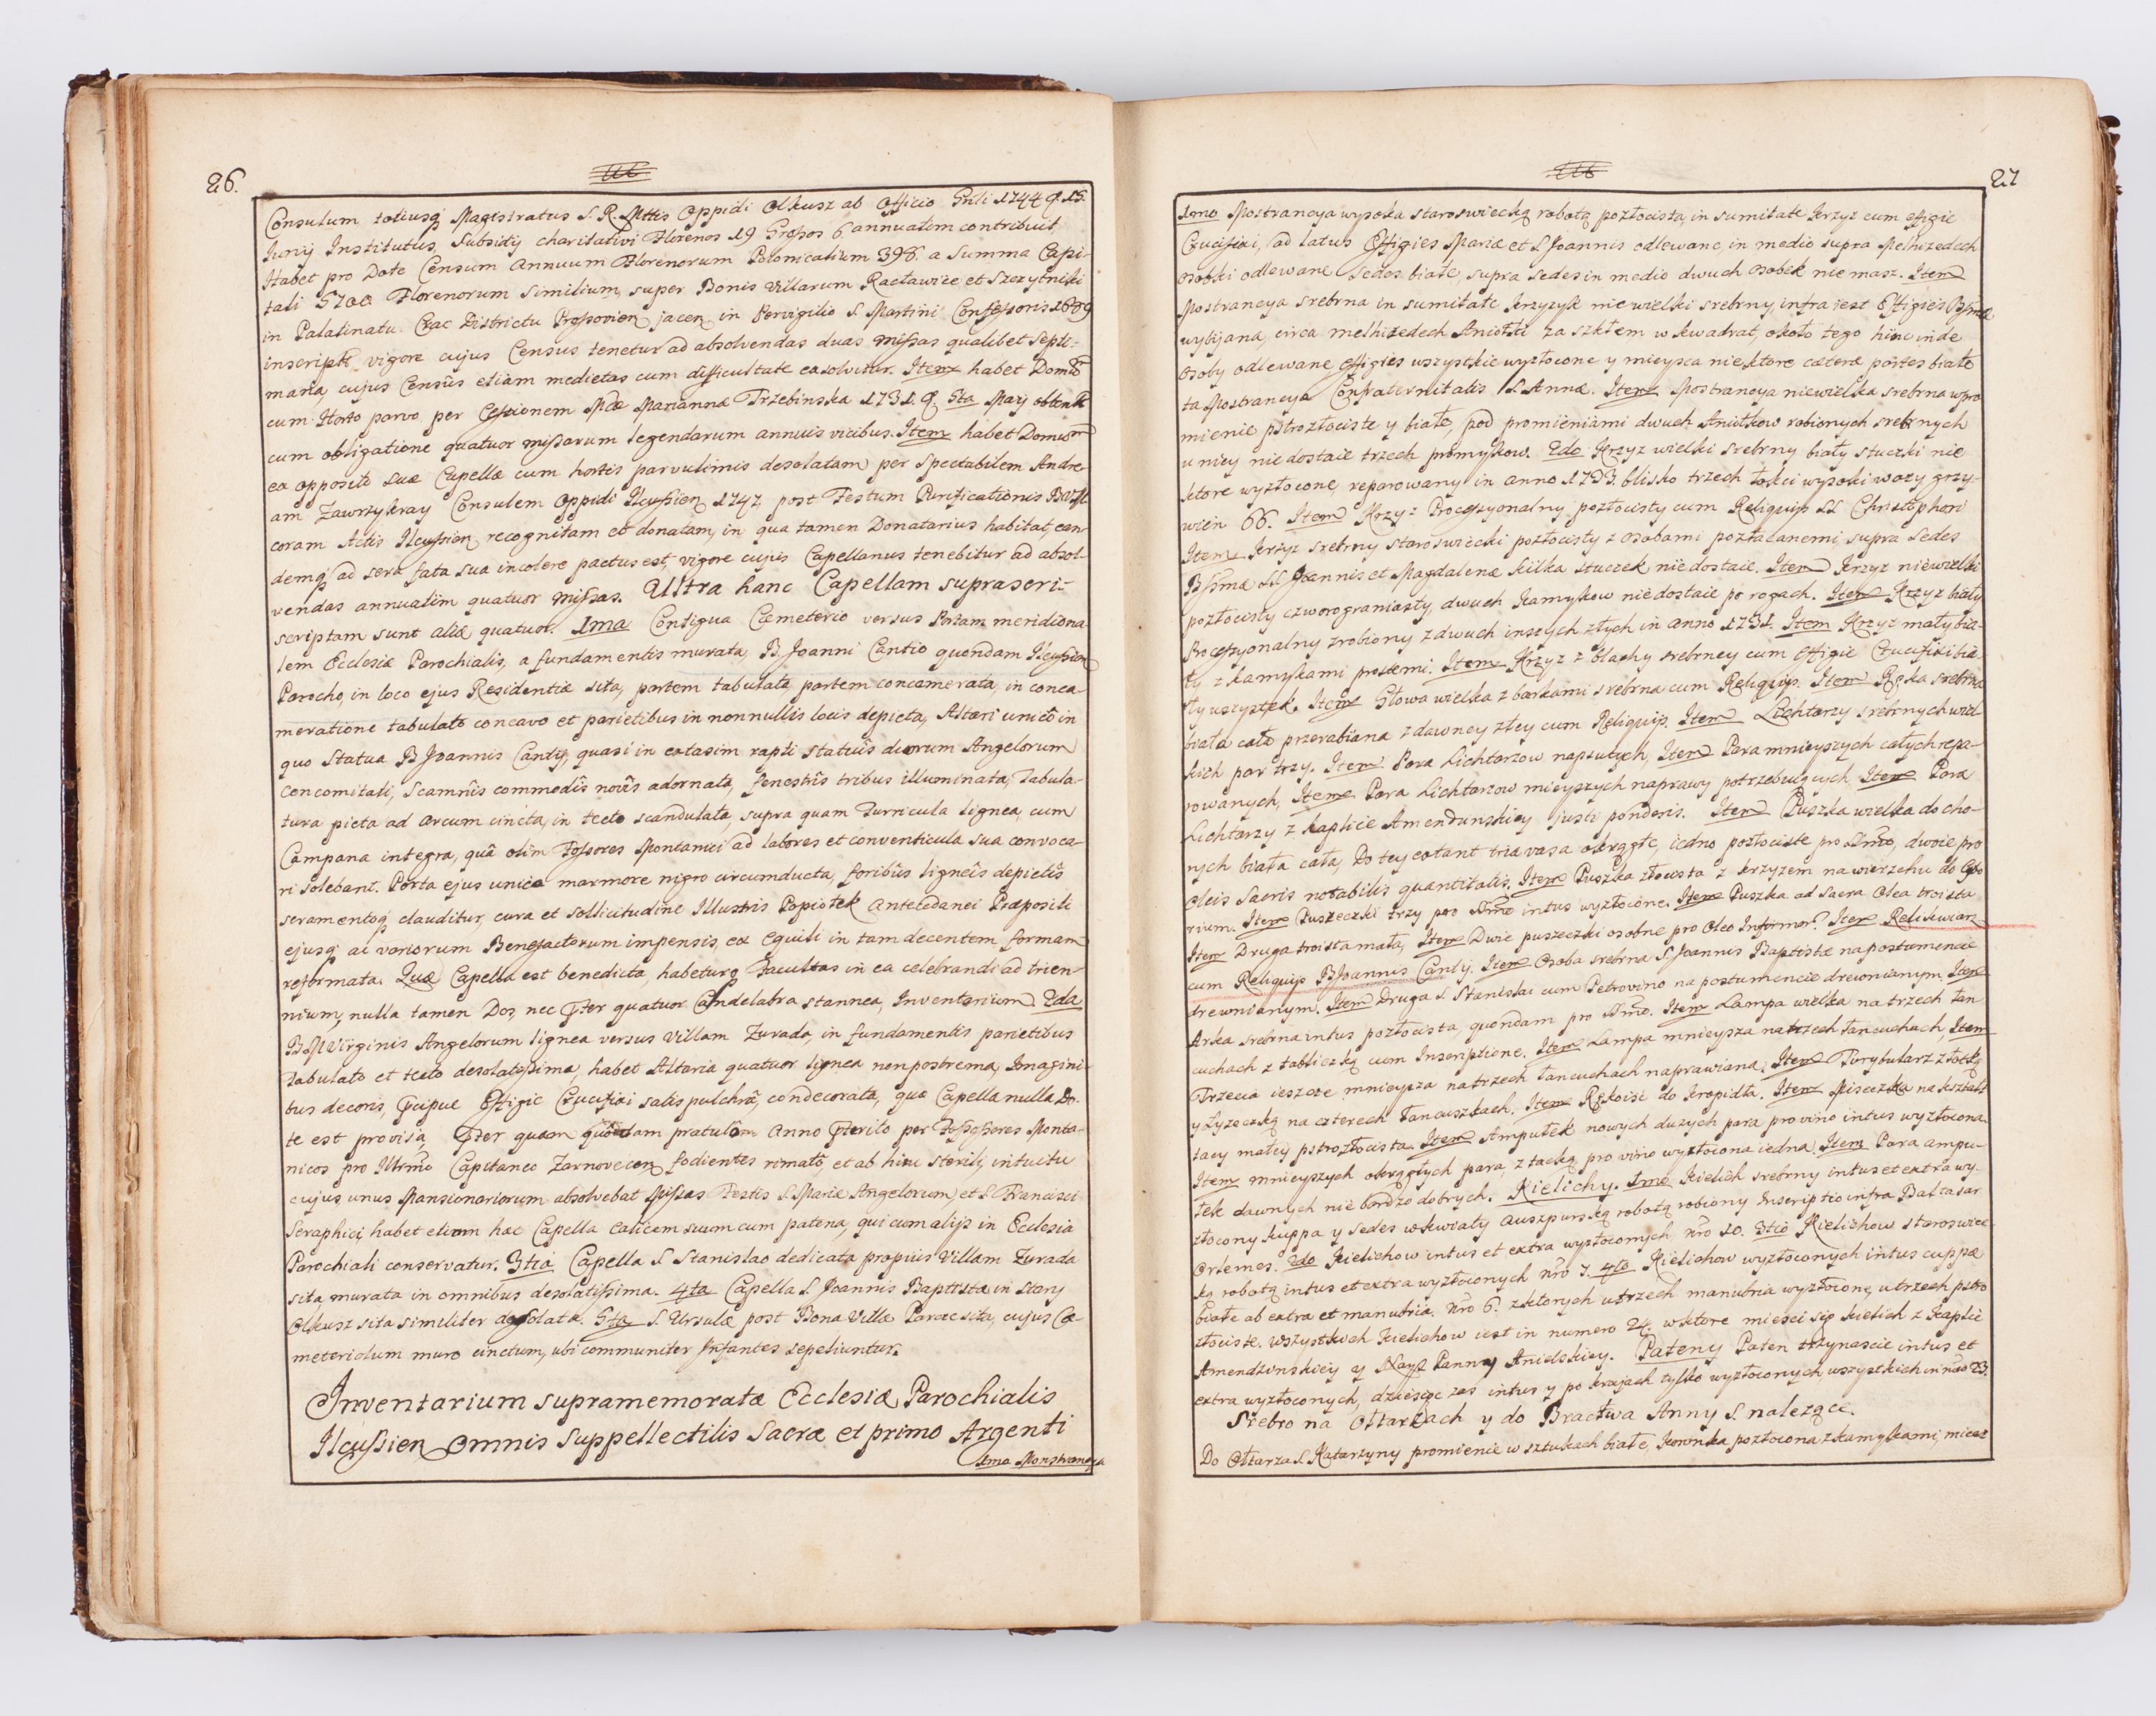 26.
Consulum totiusq Magistratus S. R. Mttis Oppidi Olkusz ab Officio Gnli 1744 q. 15.
Junij Institutus, Subsidij charitativi Florenos 19 Grossos 6 annuatim contribuit,
Habet pro Dote Censum Annuum Florenorum Polonicalium 398. a Summa Capi-
tali 5700 Florenorum similium, super Bonis Villarum Racławice et Szczytniki
in Palatinatu Crac Districtu Prossovien jacen in Pervigilio S. Martini Confessoris 1689
inscripti, vigore cujus Census tenetur ad absolvendas duas missas qualibet Septi-
mana, cujus Censûs etiam medietas cum difficultate exsolvitur. Item habet Domũ
cum Horto parvo per Cessionem Mdæ Mariannæ Trzebinska 1731. q. 5ta Maij obtentã
cum obligatione quatuor missarum legendarum annuis vicibus. Item habet Domum
ex opposito suæ Capellæ cum hortis parvulimis desolatam per Spectabilem Andre-
am Zawrzykray Consulem Oppidi Ilcussien 1747 post Festum Purificationis
coram Actis Ilcussien recognitam et donatam, in qua tamen Donatarius habitat, ean-
demq ad sera fata sua incolere pactus est, vigore cujus Capellanus tenebitur ad absol-
vendas annuatim quatuor missas. Ultra hanc Capellam suprascri-
scriptam sunt aliæ quatuor. 1ma Contigua Cæmeterio versus Portam meridiona-
lem Ecclesiæ Parochialis, a fundamentis murata, B. Joanni Cantio quondam Ilcussien
Parocho, in loco ejus Residentiæ sita, partem tabulata, partem concamerata, in conca-
meratione tabulato concavo et parietibus in nonnullis locis depicta, Altari unico in
quo Statua B Joannis Cantij, quasi in extasim rapti statuis duorum Angelorum
concomitati, Scamnis commodis novis adornata, fenestris tribus illuminata, Tabula-
tura picta ad arcum cincta, in tecto scandulata, supra quam Turricula lignea, cum
Campana integra, quâ olim Fossores Montanici ad labores et conventicula sua convoca-
ri solebant. Porta ejus unica marmore nigro circumducta, foribus ligneis depictis
seramentoq clauditur, cura et sollicitudine Illustris Popiołek Antecedanei Præpositi
ejusq ac variorum Benefactorum impensis, ex Equili in tam decentem formam
reformata. Quæ Capella est benedicta, habeturq Facultas in ea celebrandi ad trien-
nium, nulla tamen Dos, nec pter quatuor Candelabra stannea, Inventarium. 2da
B M Virginis Angelorum lignea versus Villam Zurada, in fundamentis parietibus
tabulato et tecto desolatissima, habet Altaria quatuor lignea non postrema, Imagini-
bus decoris, pcipue Effigie Crucifixi satis pulchrâ, condecorata, quæ Capella nulla Do-
te est provisa, pter quam quoddam pratulum Anno pterito per Fossessores Monta-
nicos pro Illrmo Capitaneo Zarnovecen fodientes rimatô, et ab hinc sterili, intuitu
cujus, unus Mansionariorum absolvebat Missas Festis S. Mariæ Angelorum, et S. Francisci
Seraphici, habet etiam hæc Capella calicem suum cum patena, qui cum alijs in Ecclesia
Parochiali conservatur. 3tia Capella S Stanislao dedicata propius Villam Zurada
sita, murata in omnibus desolatissima. 4ta Capella S. Joannis Baptistæ in Stary
Olkusz sita similiter desolata. 5ta S. Ursulæ post Bona Villæ Parcze sita, cujus Cæ-
meteriolum muro cinctum, ubi communiter Infantes sepeliuntur.
Inventarium supramemoratæ Ecclesiæ Parochialis
Ilcussien Omnis Suppellectilis Sacræ et primo Argenti
1ma Monstrancya
27
1mo Mostrancya wysoka staroswiecką robotą pozłocista, in sumitate krzyz cum effigie
Crucifixi, ad latus Effigies Mariæ et S Joannis odlewane, in medio supra Melhizedech
osobki odlewane sedes białe, supra sedes in medio dwuch osobek nie masz. Item
Mostrancya srebrna in sumitate krzyzyk nie wielki srebrny, infra jest Effigies Bssmæ
wybijana, circa melhizedech Aniołki za szkłem w kwadrat, około tego hinc inde
osoby odlewane Effigies wszystkie wyzłocone y mieysca niektore cæteræ partes białe
ta Mostrancya Confraternitatis S. Annæ. Item Mostrancya niewielka srebrna w pro
mienie pstrozłociste y białe, pod promieniami dwuch Aniołkow robionych srebrnych
u niey niedostaie trzech promykow. 2do Krzyz wielki srebrny biały sztuczki nie
ktore wyzłocone, reparowany in anno 1733. blisko trzech łokci wysoki wazy grzy-
wien 66. Item Krzyz Processyonalny pozłocisty cum Reliquijs SS. Christophori
Item krzyz srebrny staroswiecki pozłocisty z osobami pozłacanemi, supra sedes
Bssmæ SS Joannis et Magdalenæ kilka sztuczek niedostaie. Item krzyz niewielki
pozłocisty czworograniasty, dwuch kamykow niedostaie po rogach. Item Krzyz biały
Processyonalny zrobiony z dwuch inszych złych in anno 1731. Item Krzyz mały bia-
ły z kamykami prostemi. Item Krzyz z blachy srebrney cum Effigie Crucifixi bia-
ły wszystek. Item Głowa wielka z barkami srebrna cum Reliquijs. Item Ręka srebrna
biała cało przerabiana z dawney złey cum Reliquijs. Item Lichtarzy srebrnych wiel
kich par trzy. Item Para Lichtarzow napsutych, Item Para mnieyszych całych repa-
rowanych, Item Para Lichtarzow mieyszych naprawy potrzebuiących, Item Para
Lichtarzy z kaplice Amendunskiey justi ponderis. Item Puszka wielka do cho-
rych biała cała, Do tey extant tria vasa okrągłe, iedno pozłociste pro SSmo, dwoie pro
oleis Sacris notabilis quantitatis. Item Puszka złocista z krzyzem na wierzchu do Cibo
rium. Item Puszeczki trzy pro SSmo intus wyzłocone. Item Puszka ad Sacra Olea troista
Item Druga troista mała, Item Dwie puszeczki osobne pro Oleo Infirmor. Item Relikwiarz
cum Reliquijs B Joannis Cantij. Item Osoba srebrna S. Joannis Baptistæ na postumencie
drewnianym. Item Druga S. Stanislai cum Petrovino na postumencie drewnianym, Item
Arka srebrna intus pozłocista, quondam pro SSmo. Item Lampa wielka na trzech łan
cuchach z tabliczką cum Inscriptione. Item Lampa mnieysza na trzech łancuchach, Item
Trzecia ieszcze mnieysza na trzech łancuchach naprawiana; Item Turybularz z łotką
y łyzeczką na czterech łancuszkach. Item Rękoisc do kropidła. Item Miseczka na kształt
tacy małey pstrozłocista. Item Ampułek nowych duzych para pro vino intus wyzłocona.
Item mnieyszych okrągłych para, z tacką pro vino wyzłocona iedna, Item Para ampu-
łek dawnych nie bardzo dobrych. Kielichy. 1mo Kielich srebrny intus et extra wy-
złocony kuppa y sedes w kwiaty Auszpurską robotą robiony Inscriptio infra Baltasar
Ortemes. 2do Kielichow intus et extra wyzłoconych nro 10. 3tio Kielichow staroswiec
ką robotą intus et extra wyzłoconych nro 7. 4to Kielichow wyzłoconych intus cuppæ
białe ab extra et manubria, nro 6. z ktorych u trzech manubria wyzłocone, u trzech pstro
złociste. Wszystkich kielichow iest in numero 24. w ktore miesci się kielich z Kaplic
Amendunskiey y Nays Panny Anielskiey. Pateny Paten trzynascie intus et
extra wyzłoconych, dziesięc zas intus y po kraiach tylko wyzłoconych wszystkich in nro 23.
Srebro na Ołtarzach y do Bractwa Anny S. nalezące.
Do Ołtarza S. Katarzyny promienie w sztukach białe, koronka pozłocona z kamykami, miecz